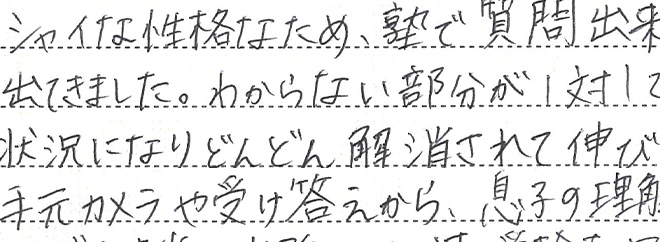 シャイな性格なため、塾で質問出来
出てきました。わからない部分が1対1で
状況になりどんどん解消されて伸び
手元カメラや受け答えから、息子の理解